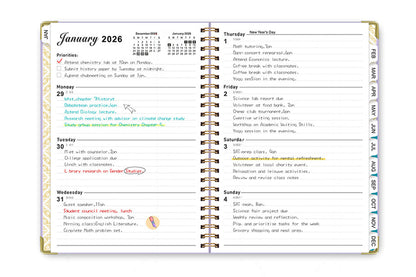 January 2026
December 2025
January 2026
Priorities:
Attend chemistry lab at 10am on Monday.
Submit history paper by Tuesday at midnight.
Attend clubmeeting on Sunday at 7am.
Monday
29
Attend Biology lecture.
Research meeting with advisor on climate change study
Study group session for Chemistry Chapter 5.
Tuesday
30
Meet with counselor, 2pm
College application due
Lunch with classmates.
Library research on Gender Studies.
Wednesday
31
Guest speaker, 11am
Student council meeting, lunch
Music composition workshop, 3pm
Morning class: English Literature.
Complete Math problem set.
Thursday
New Year's Day
1
Math tutoring, 7pm
Attend Economics lecture.
Coffee break with classmates.
Coffee break with classmates.
Yoga session in the evening.
Friday
2
Science lab report due
Volunteer at food bank, 3pm
Chess club tournament, 6pm
Creative writing session.
Workshop on Academic Writing Skills.
Yoga session in the evening.
Saturday
3
SAT prep class, 9am
Outdoor activity for mental refreshment.
Volunteer at local charity event.
Relaxation and leisure activities.
Review and revise class notes
Sunday
4
SAT review, 9am
Science fair project due
Weekly review and reflection.
Plan and prioritize tasks for the week
Grocery shopping and meal prep.
JAN
FEB
MAR
APR
MAY
JUN
JUL
AUG
SEP
OCT
NOV
DEC